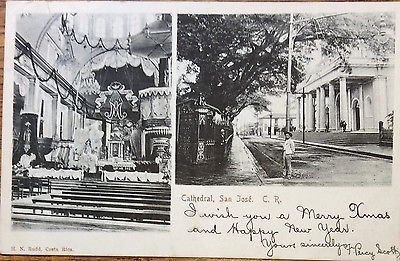 Cathedral, San José. C. R.
I wish you a Merry Xmas
and Happy New Year.
Yours sincerely
Percy Scott
H. N. Rudd, Costa Rica.